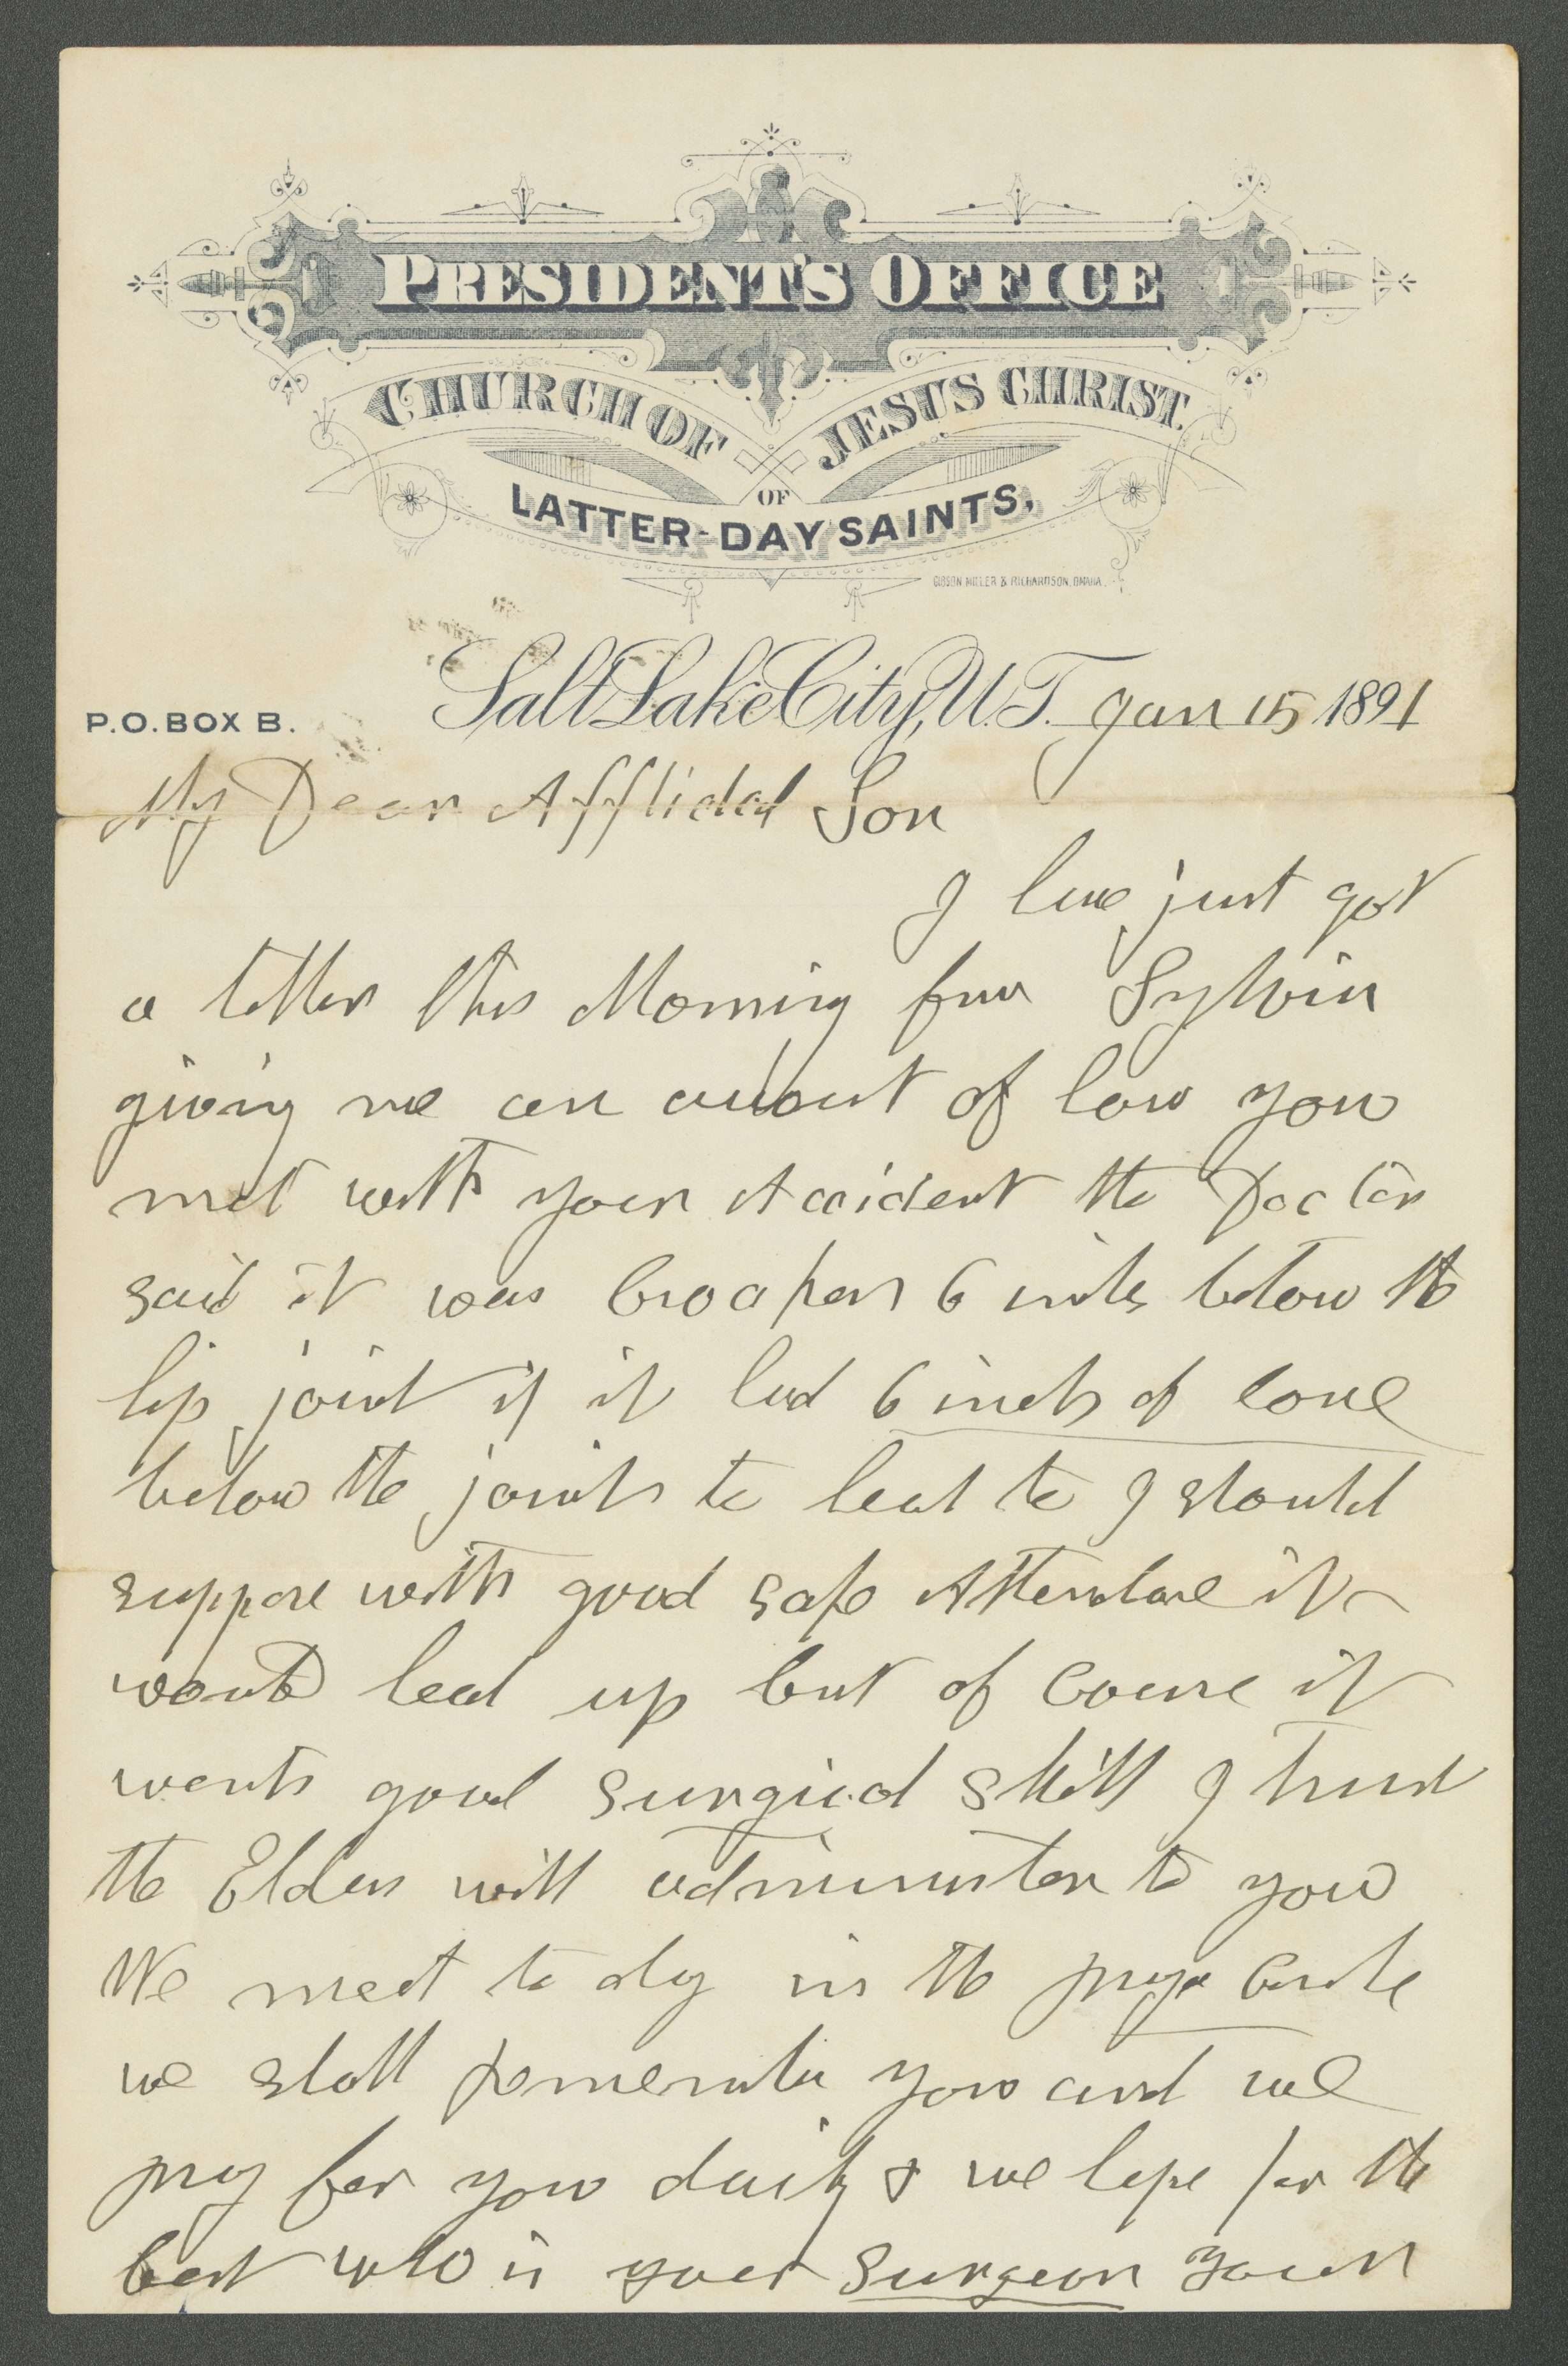 PRESIDENT'S OFFICE
CHURCH OF JESUS CHRIST
OF
LATTER-DAY SAINTS,
GIBSON MILLER & RICHARDSON, OMAHA.
P.O. BOX B. Salt Lake City, U.T. Jan 15 1891
My Dear Afflicted Son
I have just got
a letter this Morning from Sylvia
giving me an account of how you
met with your Accident the Doctor
said it was broaken 6 inches below the
hip joint if it had 6 inches of bone
below the joints to heal to I should
suppose with good safe Attendance it
would heal up but of course it
wants good surgical skill I trust
the Elders will administer to you
We meet to day in the prayer circle
we shall remember you and we
pray for you daily & we hope for the
best who is your surgeon your